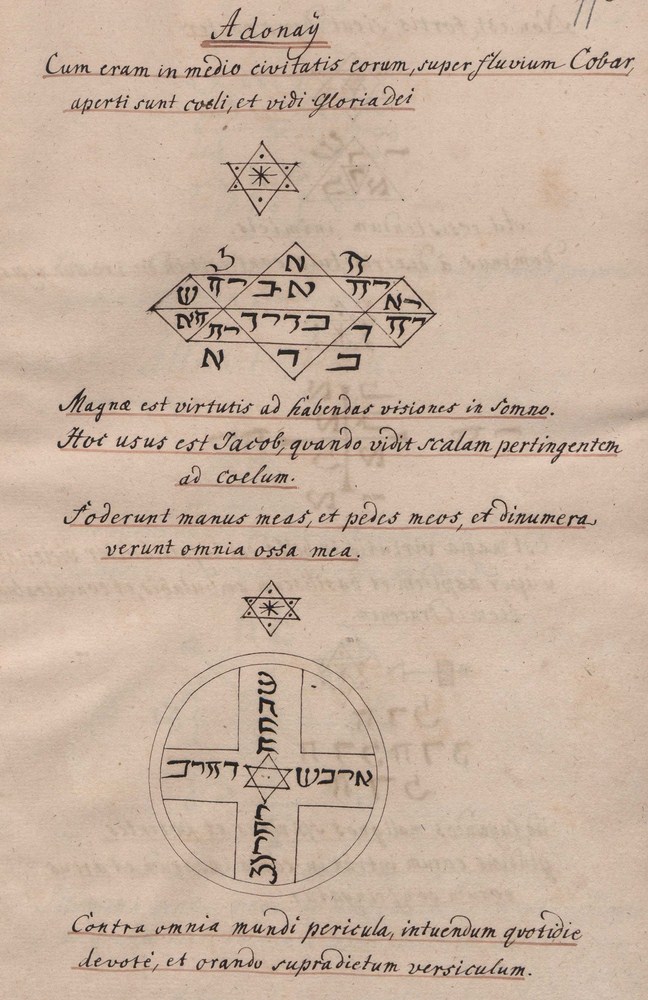 Adonaÿ
Cum eram in medio civitatis eorum, super fluvium Cobar,
aperti sunt coeli, et vidi Gloria Dei
א
ש
א ד כ
Magnæ est virtutis ad habendas visiones in Somno.
Hoc usus est Jacob, quando vidit scalam pertingentem
ad coelum.
Foderunt manus meas, et pedes meos, et dinumera
verunt omnia ossa mea.
Contra omnia mundi pericula, intuendum quotidie
devotè, et orando supradictum versiculum.